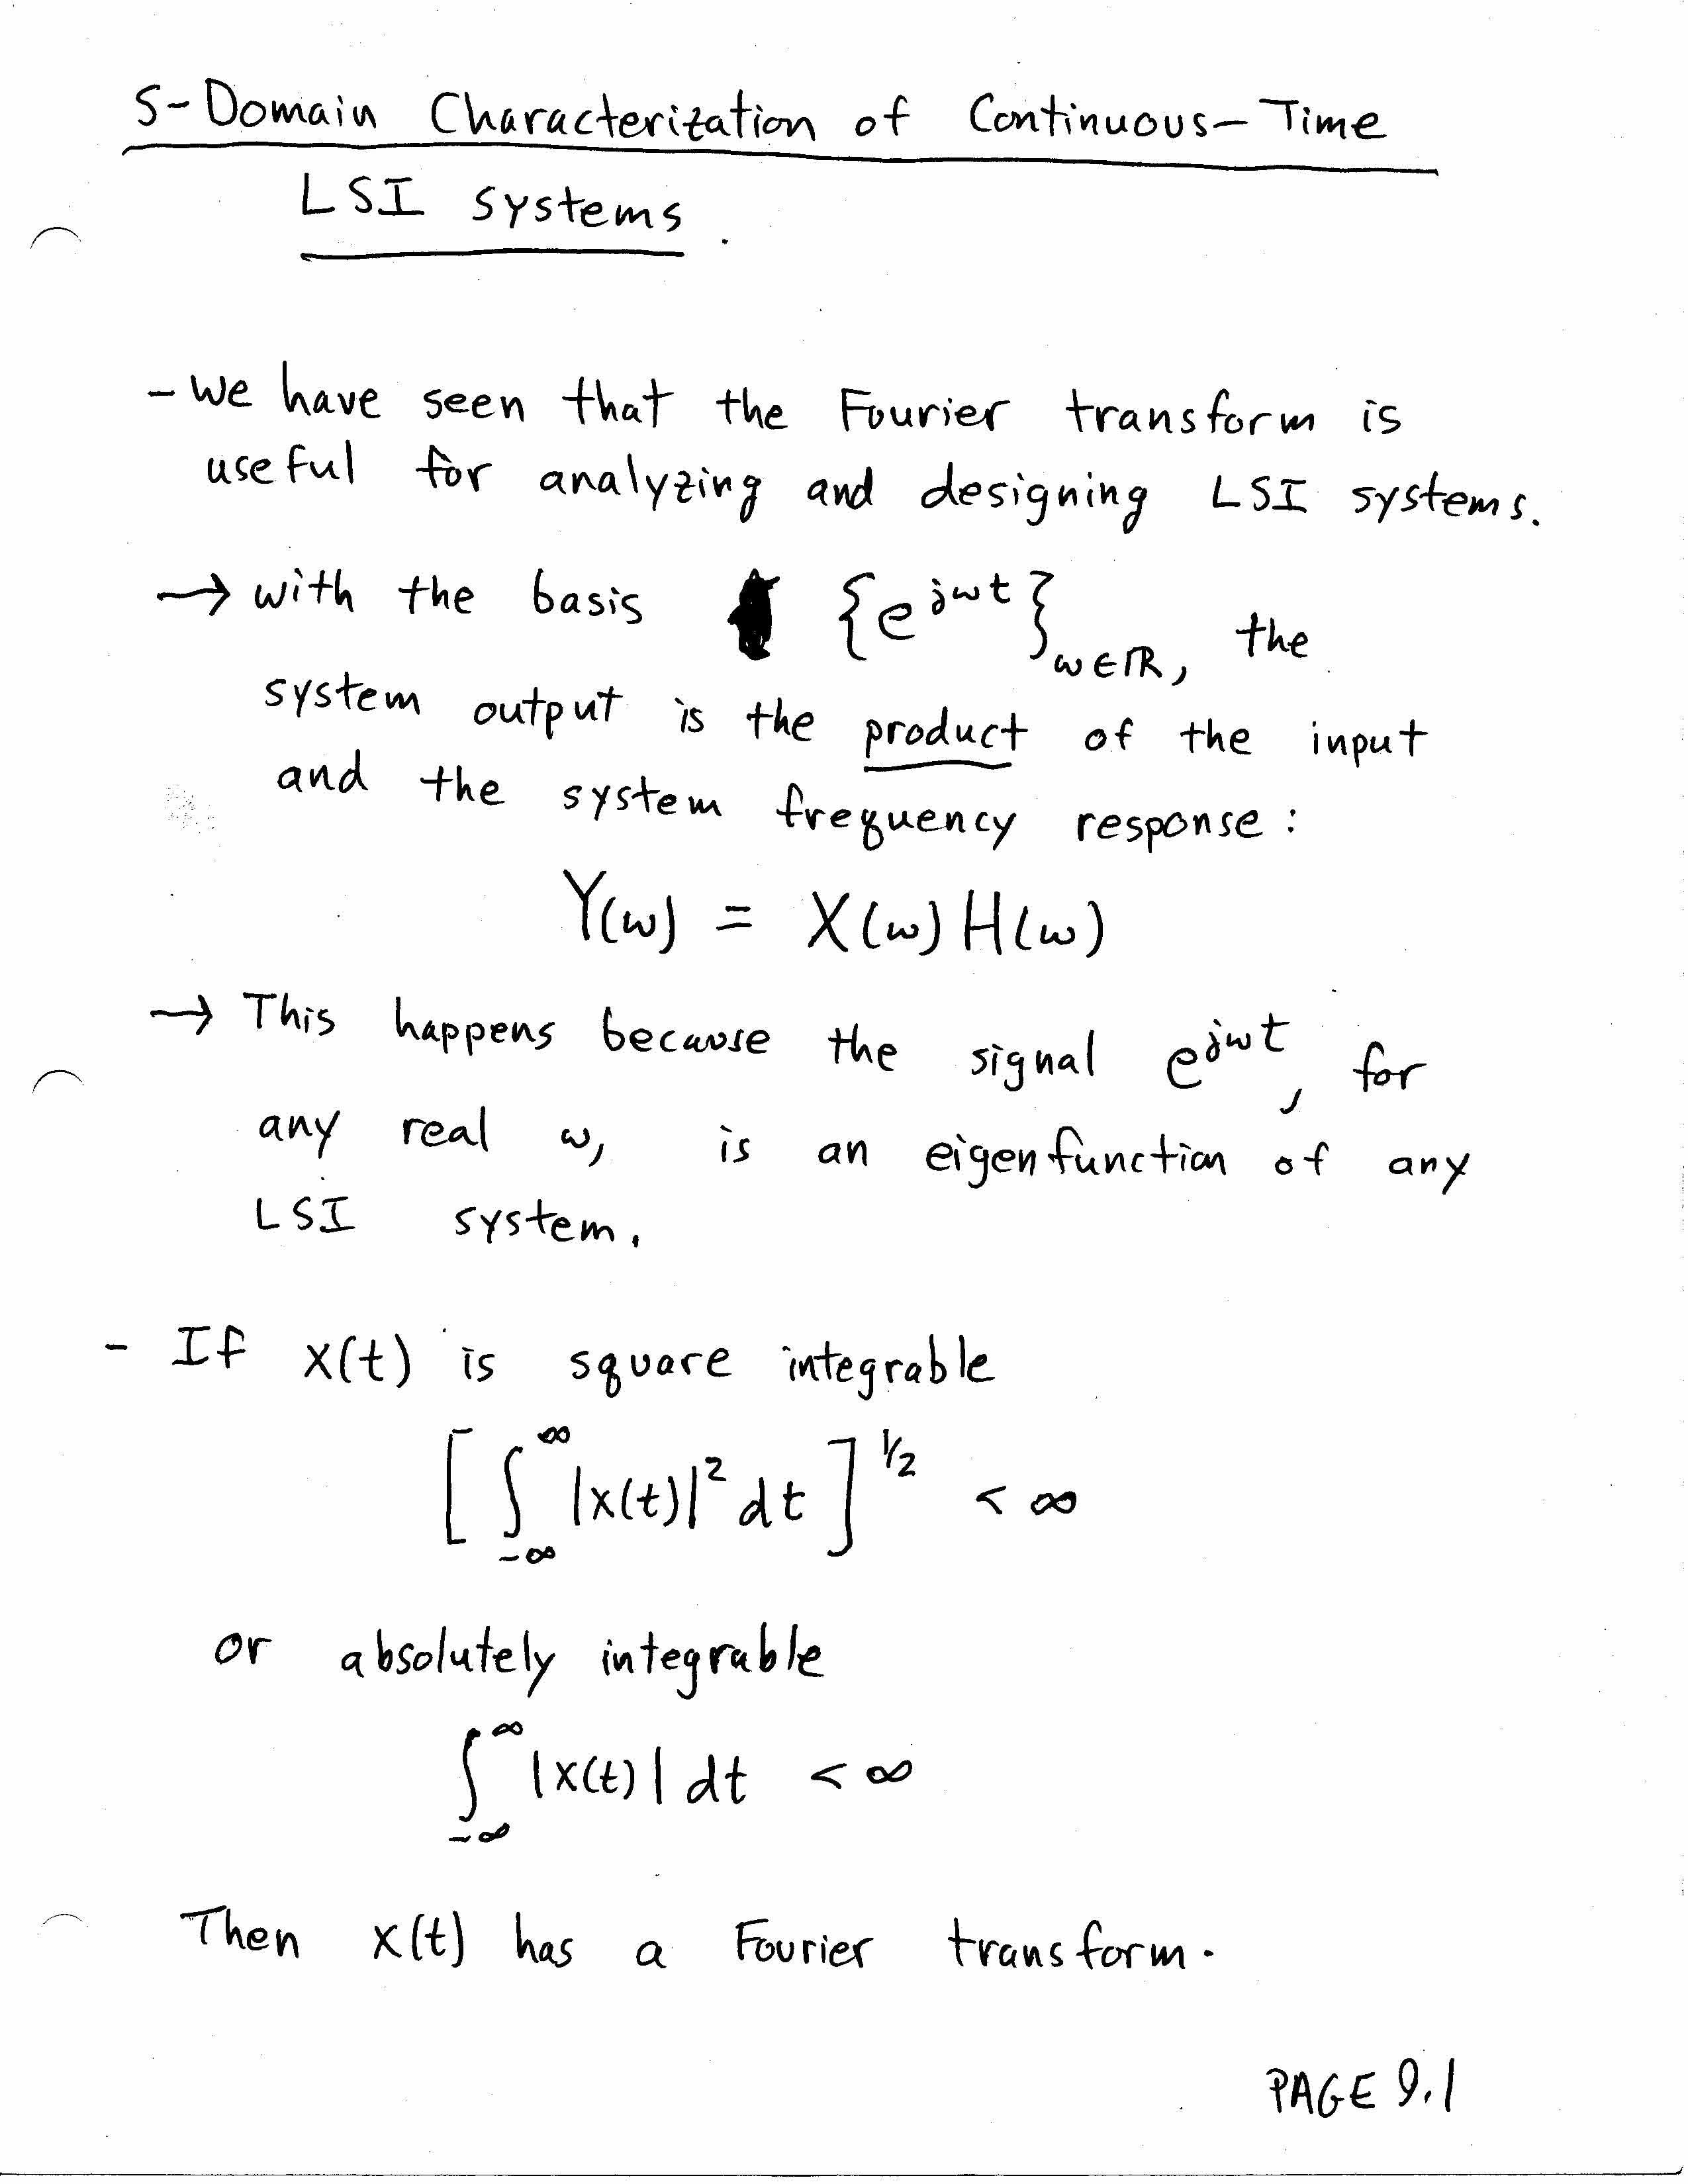 S-Domain Characterization of Continuous-Time
LSI systems.
- We have seen that the Fourier transform is
useful for analyzing and designing LSI systems.
→ with the basis {e^{jωt}}_{ω∈ℝ}, the
system output is the product of the input
and the system frequency response:
Y(ω) = X(ω)H(ω)
→ This happens because the signal e^{jωt}, for
any real ω, is an eigenfunction of any
LSI system.
- If x(t) is square integrable
[∫_{-∞}^{∞} |x(t)|² dt]^{1/2} < ∞
or absolutely integrable
∫_{-∞}^{∞} |x(t)| dt < ∞
Then x(t) has a Fourier transform.
PAGE 9.1